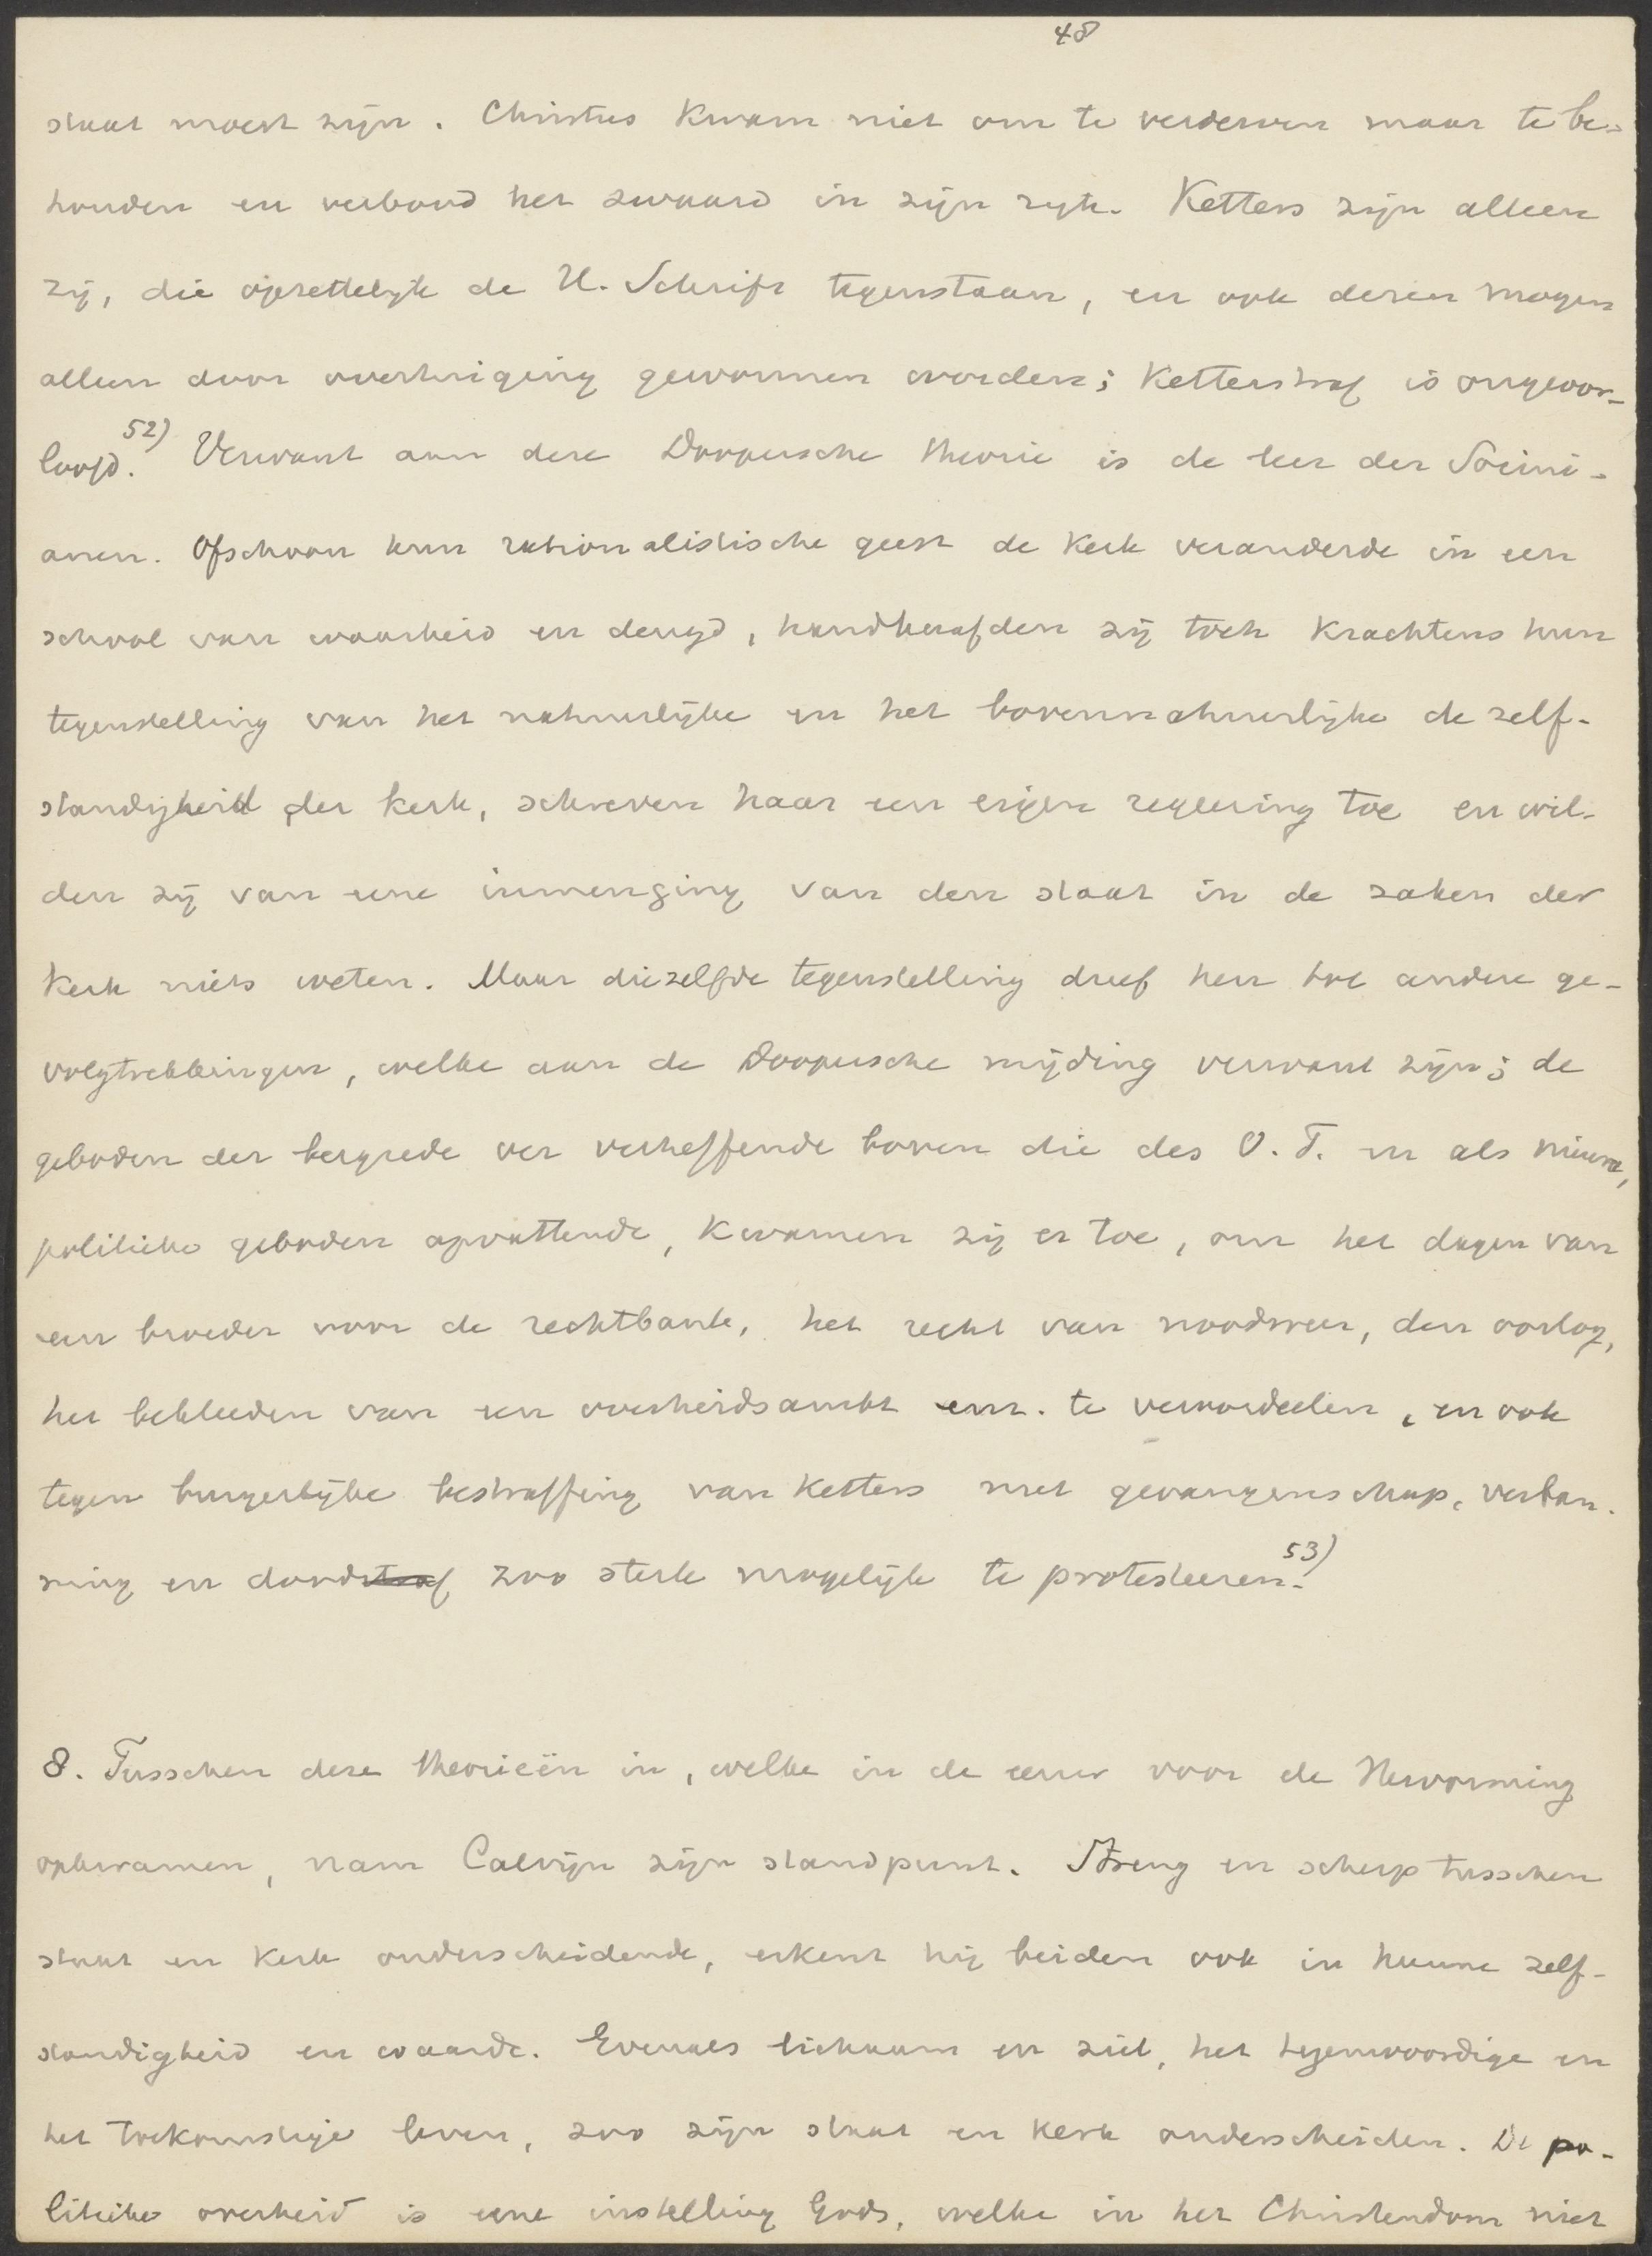 48
staat moest zijn. Christus kwam niet om te verderven maar te be-
houden en verbood het zwaard in zijn rijk. Ketters zijn alleen
zij, die opzettelijk de H. Schrift tegenstaan, en ook dezen mogen
alleen door overtuiging gewonnen worden; ketterstraf is ongeoor-
loofd. 52) Verwant aan deze Doopersche theorie is de leer der Socini-
anen. Ofschoon hun rationalistische geest de kerk veranderde in een
school van waarheid en deugd, handhaafden zij toch krachtens hun
tegenstelling van het natuurlijke en het bovennatuurlijke de zelf-
standigheid der kerk, schreven haar een eigen regeering toe en wil-
den zij van eene inmenging van den staat in de zaken der
kerk niets weten. Maar diezelfde tegenstelling dreef hen tot andere ge-
volgtrekkingen, welke aan de Doopersche mijding verwant zijn; de
geboden der bergrede ver verheffende boven die des O. T. en als nieuwe,
politieke geboden opvattende, kwamen zij er toe, om het dagen van
een broeder voor de rechtbank, het recht van noodweer, den oorlog,
het bekleeden van een overheidsambt enz. te veroordeelen, en ook
tegen burgerlijke bestraffing van ketters met gevangenschap, verban-
ning en doodstraf zoo sterk mogelijk te protesteeren. 53)
8. Tusschen deze theorieën in, welke in de eeuw voor de Hervorming
opkwamen, nam Calvijn zijn standpunt. Streng en scherp tusschen
staat en kerk onderscheidende, erkent hij beiden ook in hunne zelf-
standigheid en waarde. Evenals lichaam en ziel, het tegenwoordige en
het toekomstige leven, zoo zijn staat en kerk onderscheiden. De po-
litieke overheid is eene instelling Gods, welke in het Christendom niet